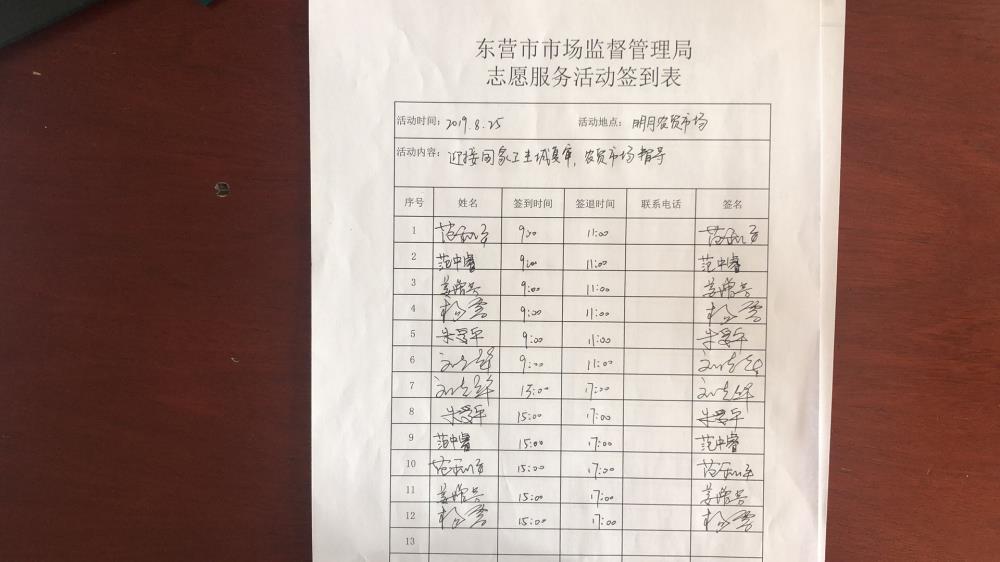 东营市市场监督管理局
志愿服务活动签到表
活动时间：2019.8.25 活动地点：明月农贸市场
活动内容：迎接国家卫生城复审，农贸市场指导
序号 姓名 签到时间 签退时间 联系电话 签名
1 9:00 11:00
2 范中睿 9:00 11:00 范中睿
3 9:00 11:00
4 杨雪 9:00 11:00 杨雪
5 朱爱军 9:00 11:00 朱爱军
6 9:00 11:00
7 15:00 17:00
8 朱爱军 15:00 17:00 朱爱军
9 范中睿 15:00 17:00 范中睿
10 15:00 17:00
11 15:00 17:00
12 杨雪 15:00 17:00 杨雪
13